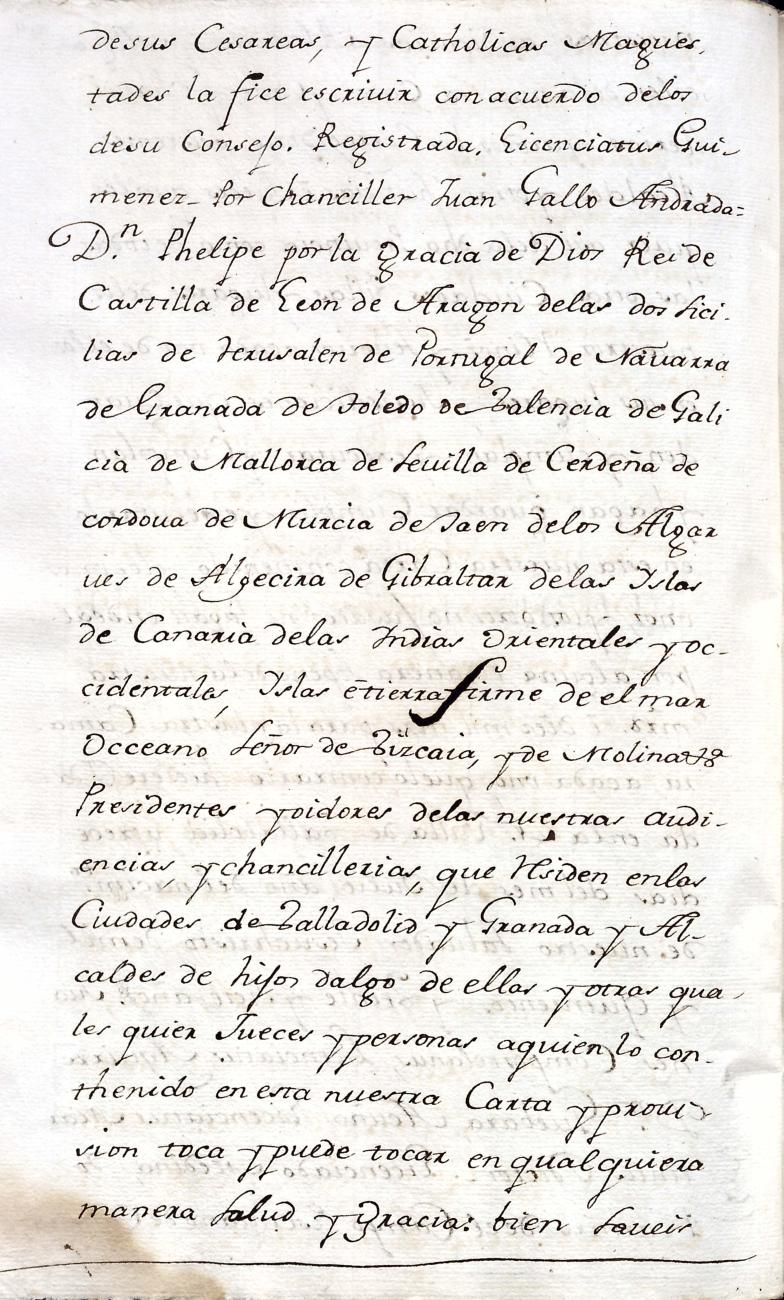 desus Cesareas, y Catholicas Mages,
tades la fice escrivir con acuerdo delos
desu Consejo. Registrada. Licenciatus Gui-
menez- Por Chanciller Iuan Gallo Andrada=
D.n Phelipe por la Gracia de Dios Rei de
Castilla de Leon de Aragon delas dos Sici-
lias de Ierusalen de Portugal de Navarra
de Granada de Toledo de Balencia de Gali
cia de Mallorca de Sevilla de Cerdeña de
cordoua de Murcia de Jaen delos Algar
ues de Algecira de Gibraltar delas Islas
de Canaria delas Indias Orientales y oc-
cidentales, Islas etierra firme de el mar
Occeano Señor de Bizcaia, y de Molina &
Presidentes y oidores delas nuestras audi-
encias, y chancillerias, que residen enlas
Ciudades de Balladolid y Granada y Al-
caldes de hijos dalgo de ellas y otras qua-
les quier Jueces y personas aquien lo con-
thenido en esta nuestra Carta y provi-
sion toca y puede tocar en qualquiera
manera Salud y Gracia: bien Saveis